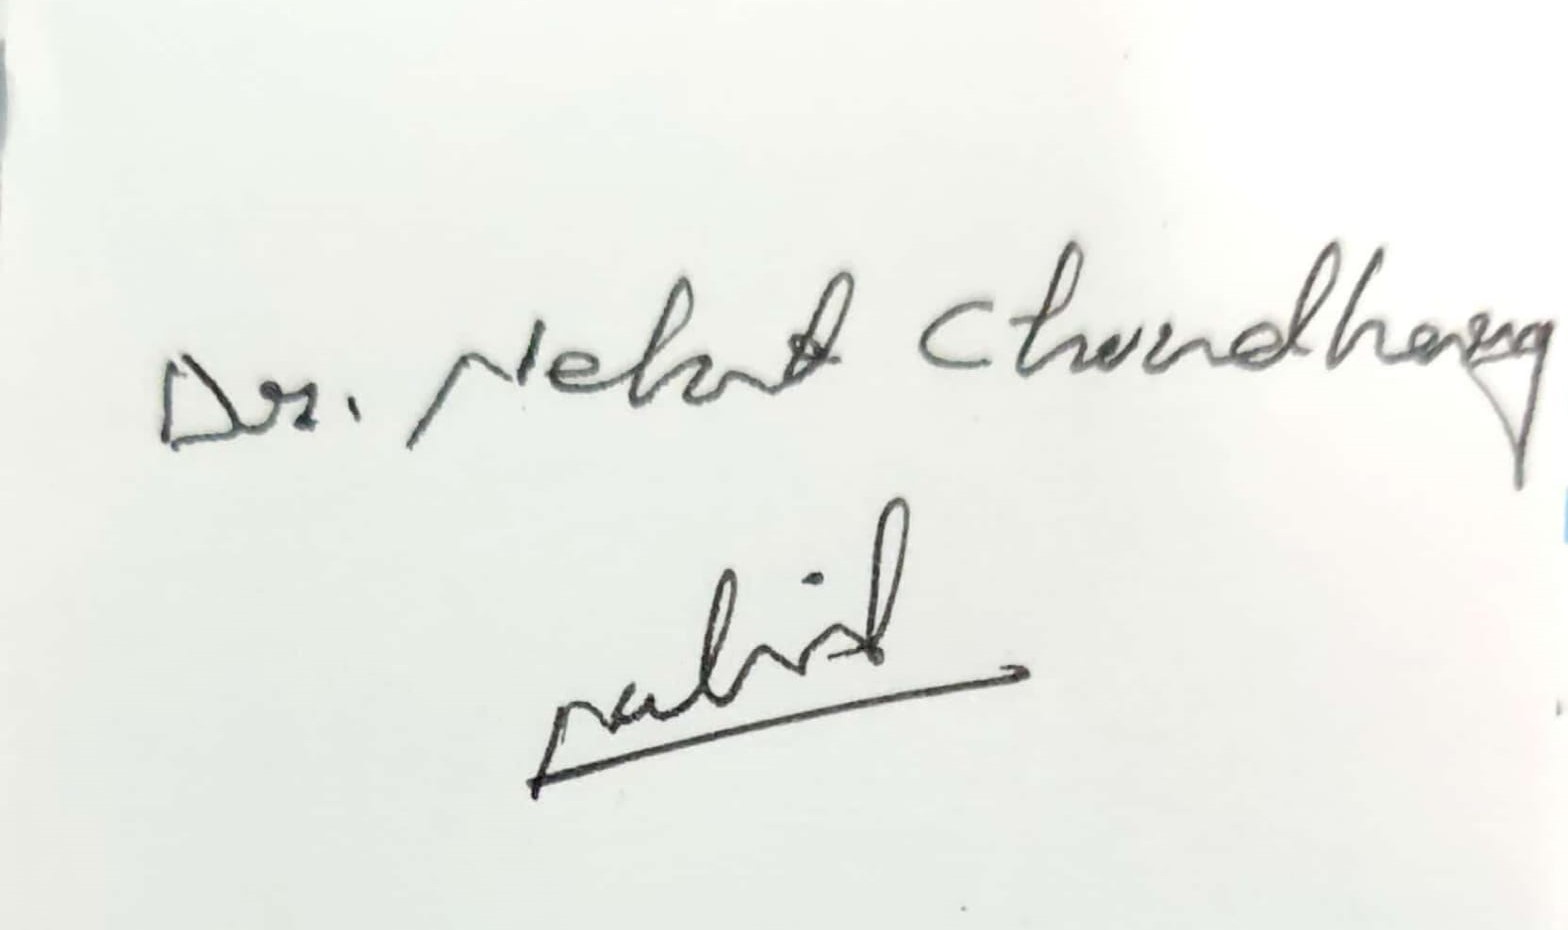 Dr. Nahid Chowdhary
Nahid